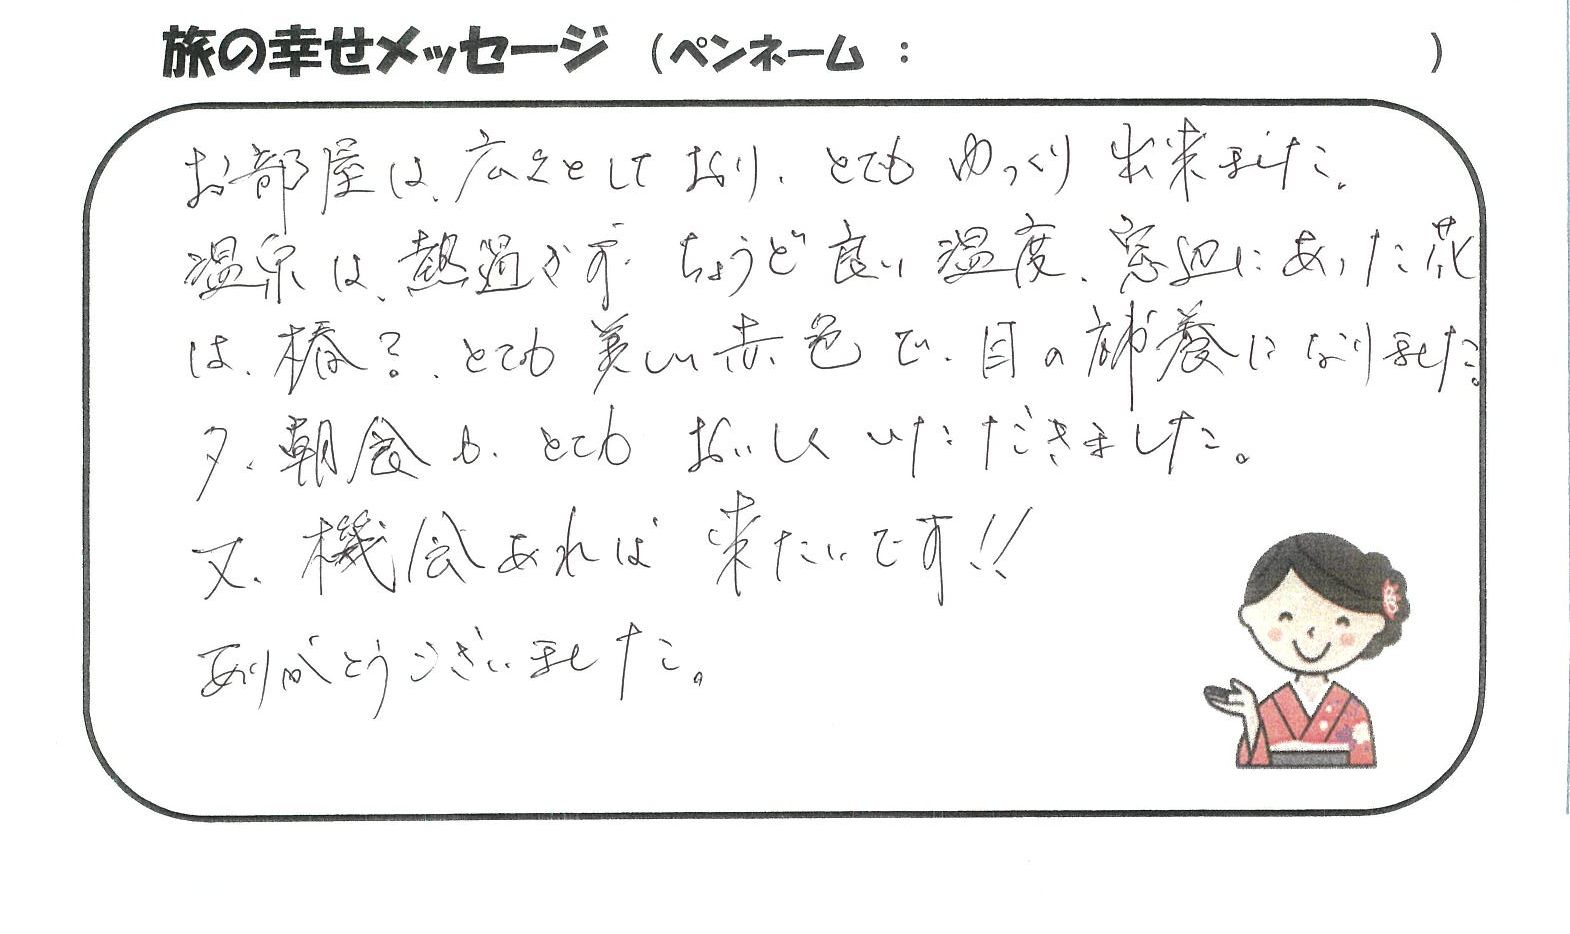 旅の幸せメッセージ (ペンネーム : )
お部屋は、広々としており、とてもゆっくり出来ました。
温泉は、熱過ぎず、ちょうど良い温度、窓辺にあった花
は、椿?、とても美しい赤色で、目の補養になりました。
夕、朝食も、とてもおいしくいただきました。
又、機会あれば来たいです!!
ありがとうございました。